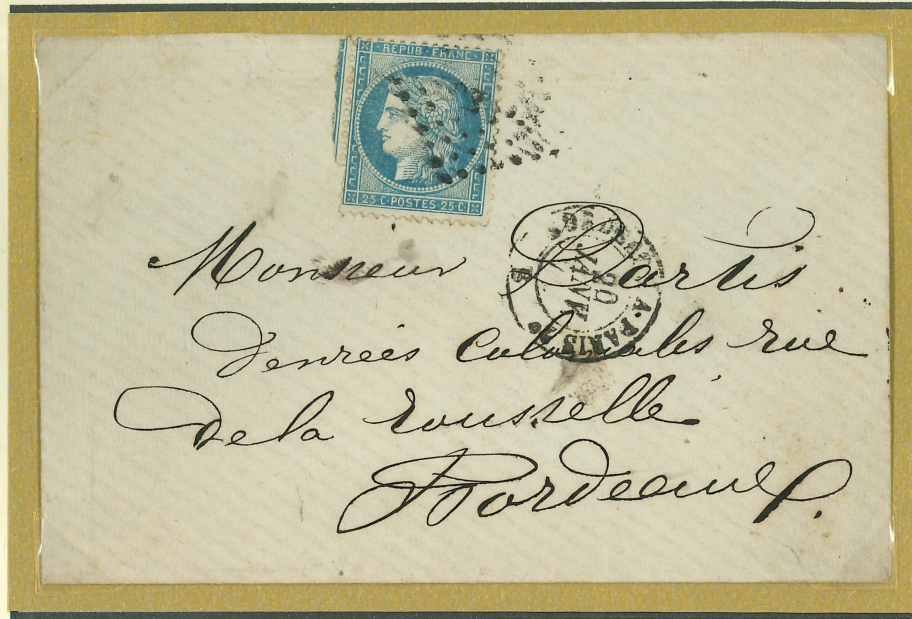 REPUB · FRANC ·
25 · C · POSTES · 25 · C
BORDEAUX A · PARIS
20
JANV
Monsieur Lartis
denrées coloniales rue
de la rousselle
Bordeaux.